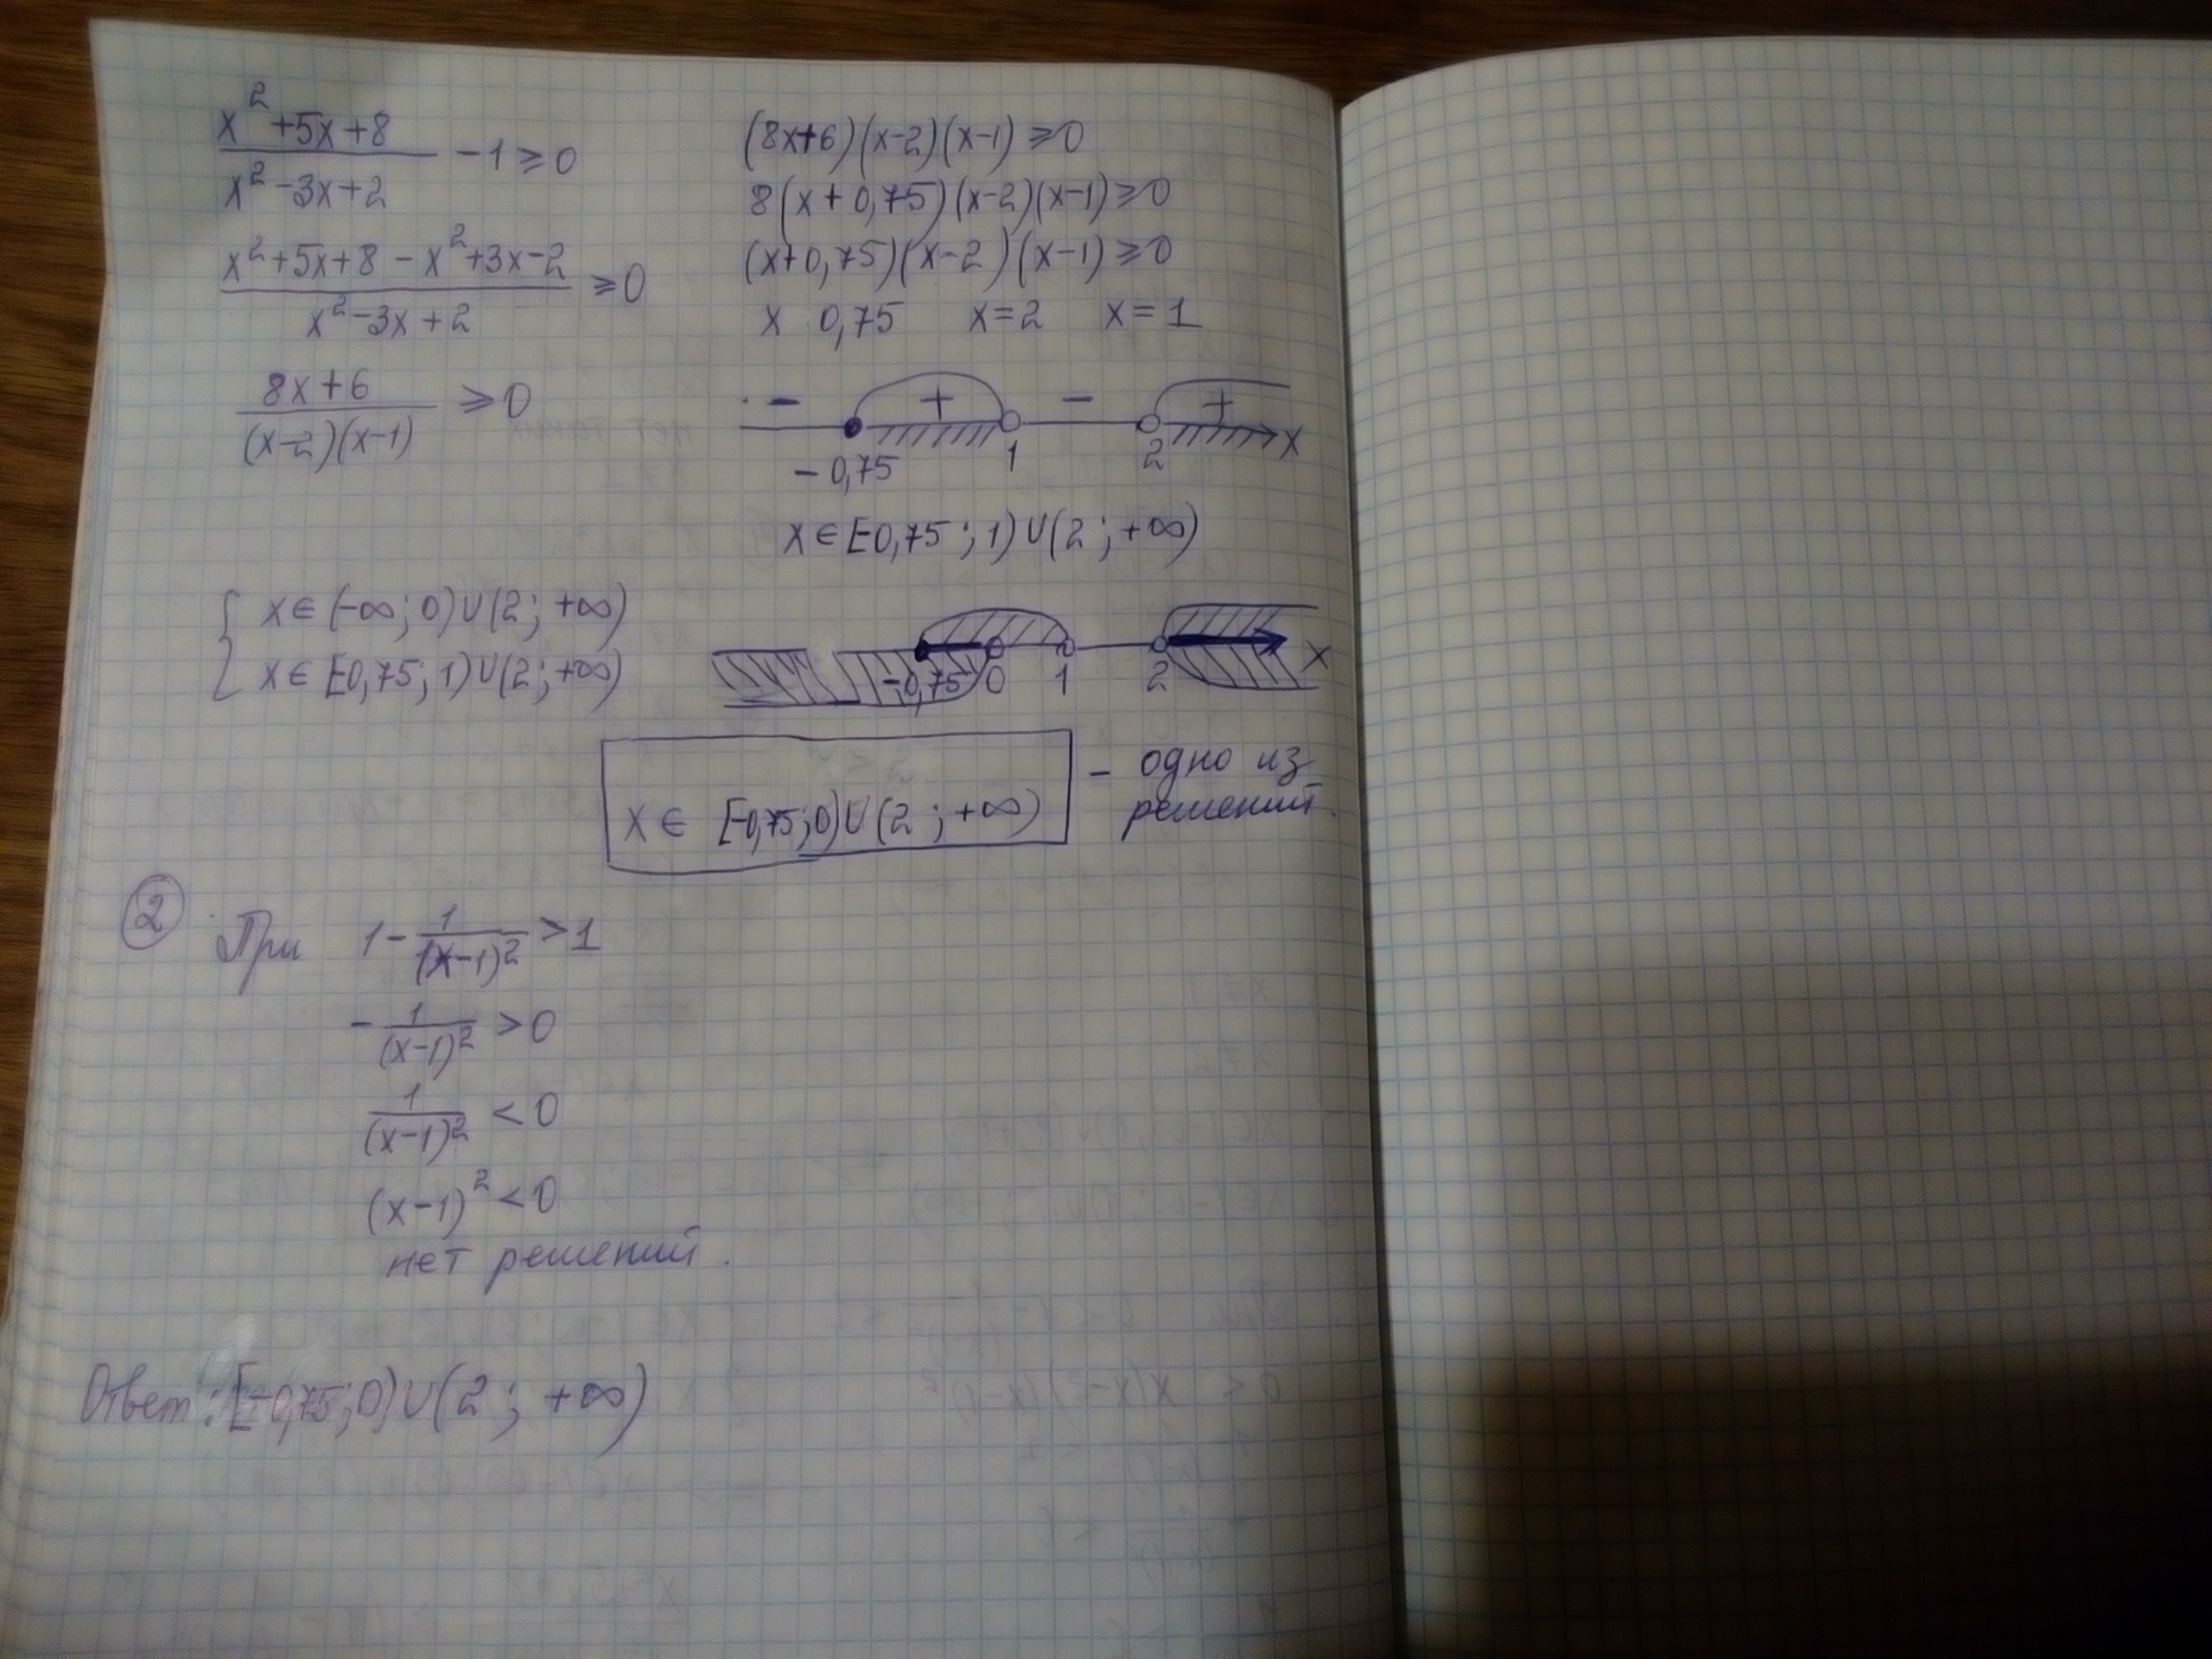 x² + 5x + 8
x² - 3x + 2
- 1 ≥ 0
x² + 5x + 8 - x² + 3x - 2
x² - 3x + 2
≥ 0
8x + 6
(x-2)(x-1)
≥ 0
(8x+6)(x-2)(x-1) ≥ 0
8(x + 0,75)(x-2)(x-1) ≥ 0
(x+0,75)(x-2)(x-1) ≥ 0
x 0,75 x=2 x=1
- + - +
-0,75 1 2 x
x ∈ [-0,75; 1) U (2; +∞)
{ x ∈ (-∞; 0) U (2; +∞)
x ∈ [-0,75; 1) U (2; +∞)
-0,75 0 1 2 x
x ∈ [-0,75; 0) U (2; +∞) - одно из
решений.
② При 1 - 1/(x-1)² > 1
- 1/(x-1)² > 0
1/(x-1)² < 0
(x-1)² < 0
нет решений.
Ответ: [-0,75; 0) U (2; +∞)